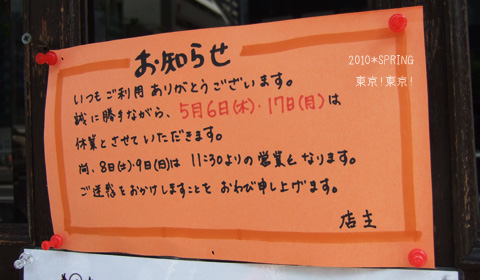 お知らせ
2010*SPRING
東京!東京!
いつもご利用ありがとうございます。
誠に勝手ながら、5月6日(木)・17日(月)は
休業とさせていただきます。
尚、8日(土)・9日(日)は 11:30よりの営業となります。
ご迷惑をおかけしますことを おわび申し上げます。
店主